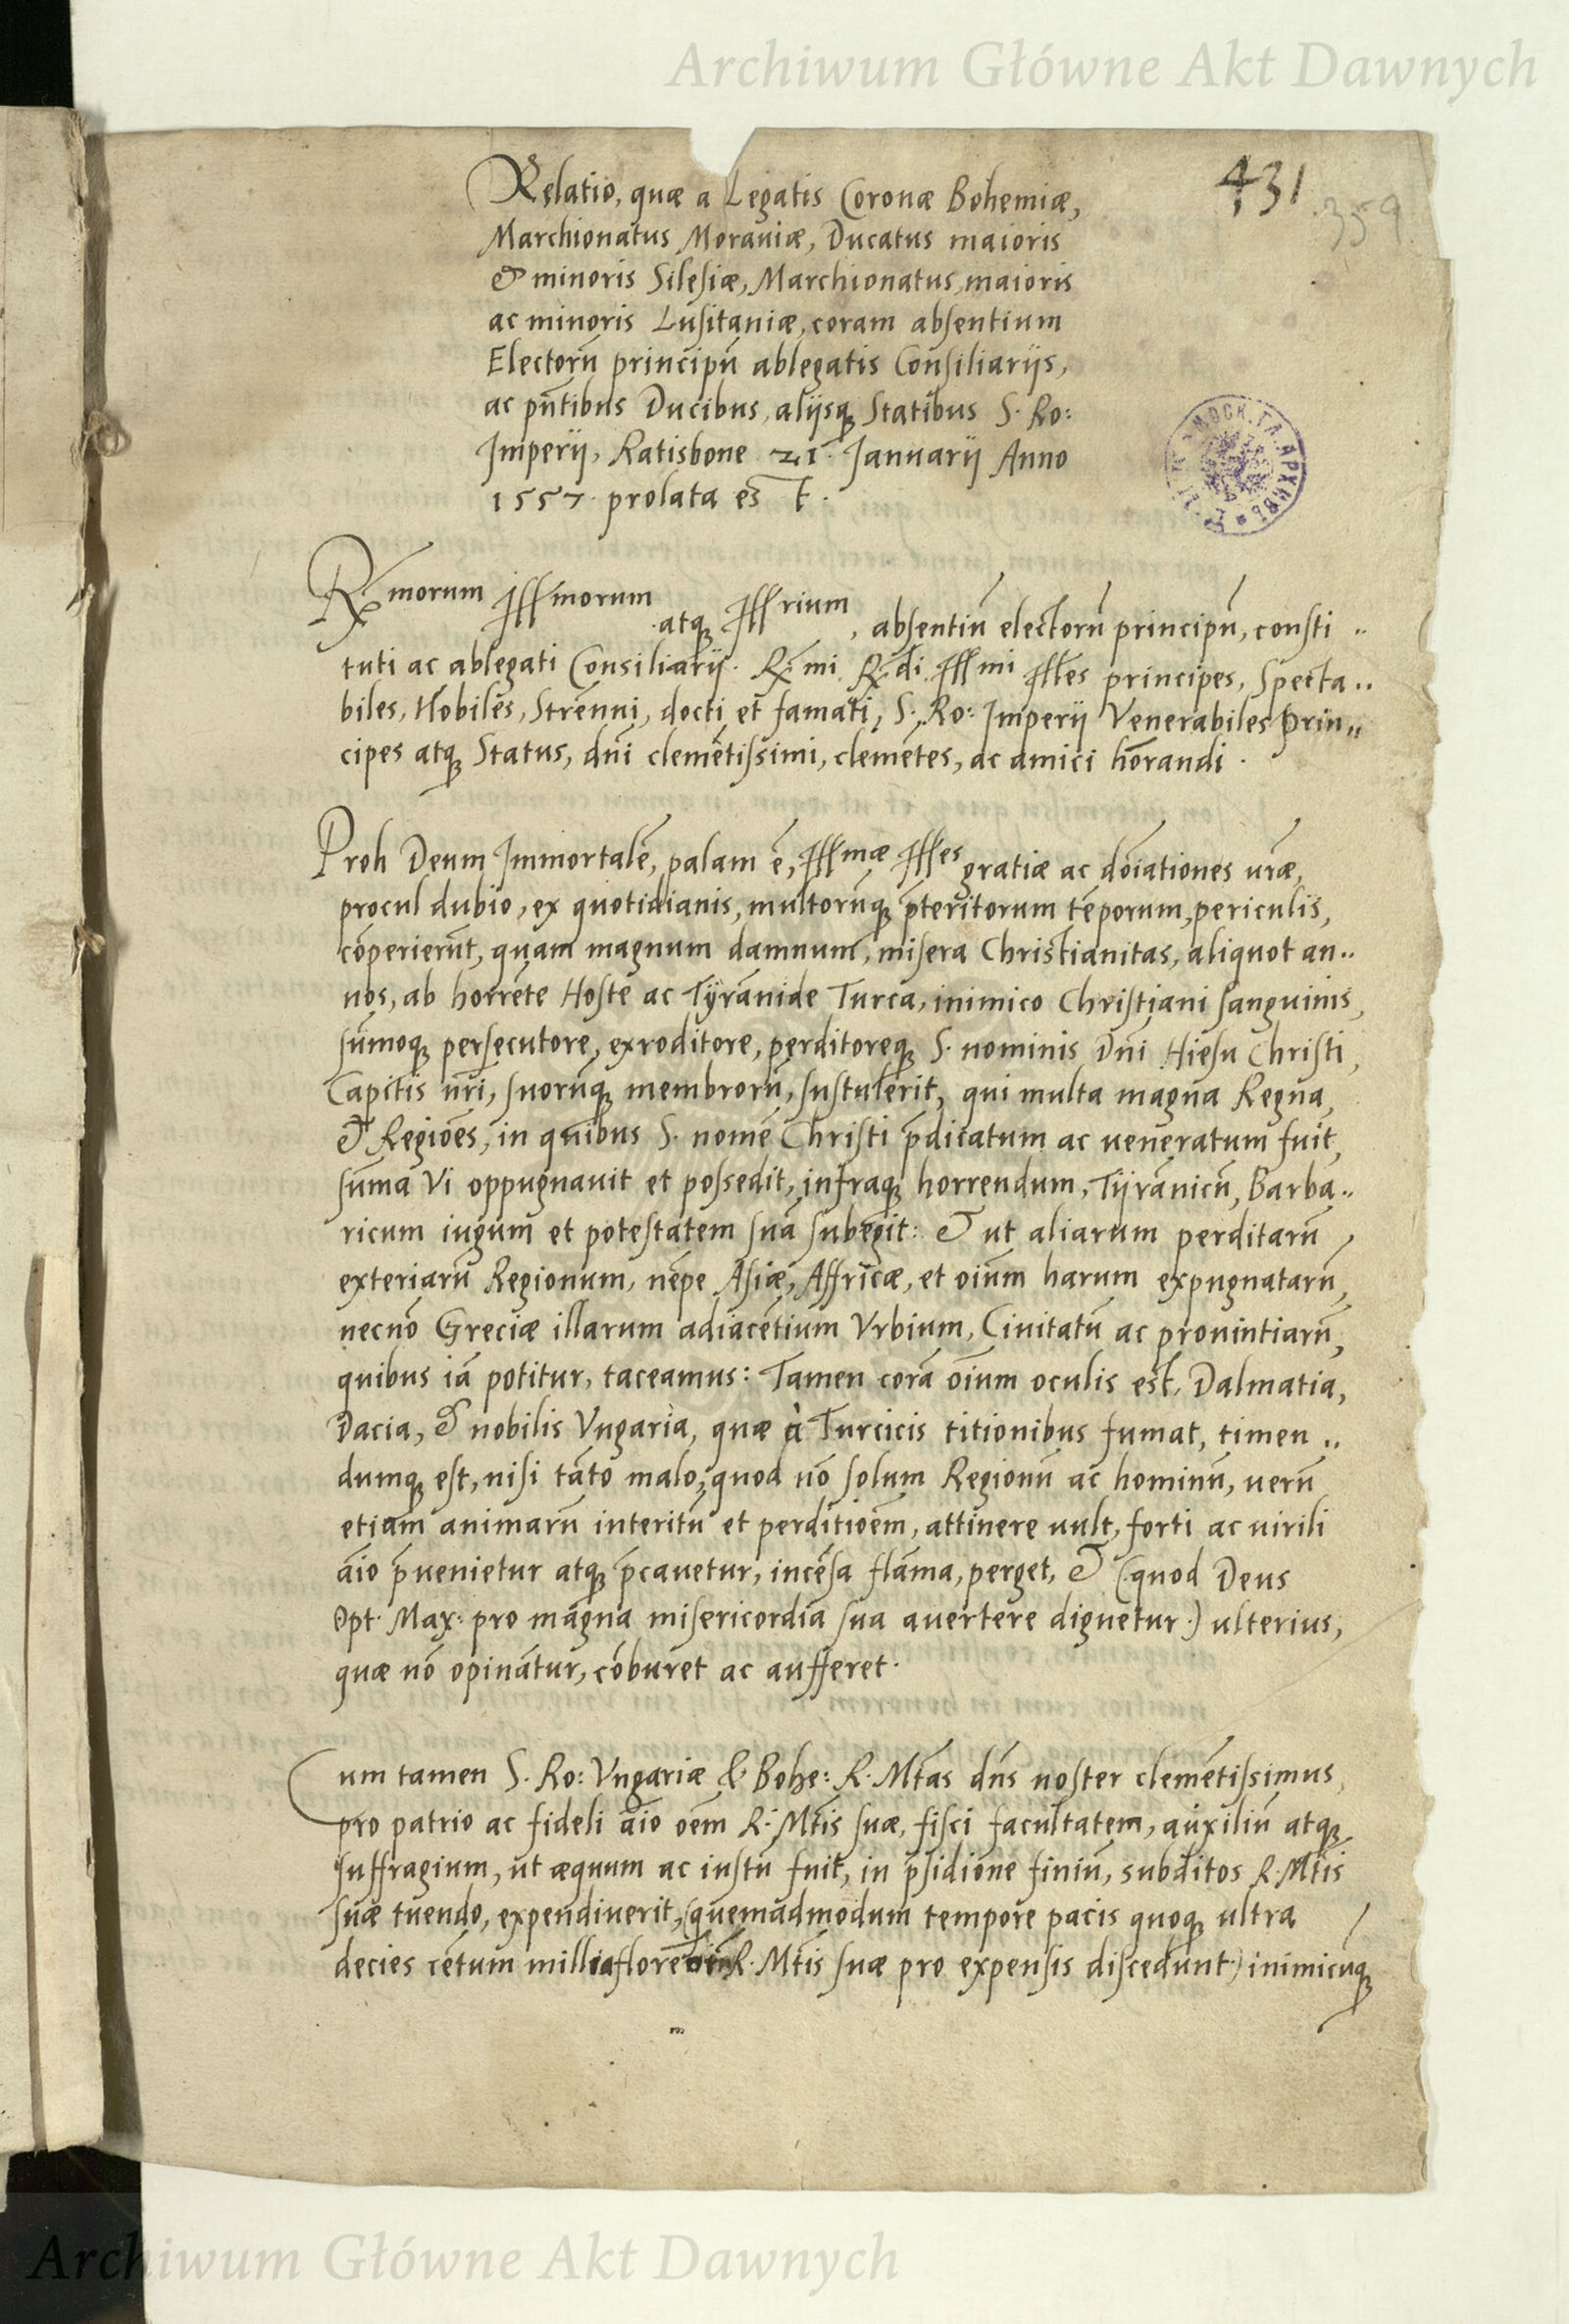 Archiwum Główne Akt Dawnych
431
359
Relatio, quæ a Legatis Coronæ Bohemiæ,
Marchionatus Morauiæ, Ducatus maioris
& minoris Silesiæ, Marchionatus, maioris
ac minoris Lusitaniæ, coram absentium
Electorū principū ablegatis Consiliariis,
ac pn̄tibus Ducibus, aliisq Statibus S. Ro:
Imperij, Ratisbone 21. Ianuarij Anno
1557. prolata est.
Rx̄morum Ill̄morum atq Ill̄rium, absentiū electorū principū, consti..
tuti ac ablegati Consiliarij. Rx̄mi Rx̄di Ill̄mi Ill̄es principes, Specta..
biles, Nobiles, Strenui, docti et famati, S. Ro: Imperij Venerabiles Prin..
cipes atq Status, dn̄i clemētissimi, clemētes, ac amici hōrandi.
Proh Deum Immortalē, palam ē, Ill̄mæ Ill̄es gratiæ ac doīationes vr̄æ,
procul dubio, ex quotidianis, multorūq p̄teritorum tēporum, periculis,
cōperierūt, quam magnum damnum, misera Christianitas, aliquot an..
nos, ab horrēte Hoste ac Tÿranide Turca, inimico Christiani sanguinis,
sūmoq persecutore, exroditore, perditoreq S. nominis Dn̄i Hiesu Christi,
Capitis nr̄i, suorūq membrorū, sustulerit, qui multa magna Regna,
& Regiōes, in quibus S. nomē Christi p̄dicatum ac veneratum fuit,
sūma Vi oppugnauit et possedit, infraq horrendum, Tÿrānicū, Barba..
ricum iugum et potestatem suā subegit: & ut aliarum perditarū
exteriarū Regionum, nēpe Asiæ, Affricæ, et oīum harum expugnatarū,
necnō Greciæ illarum adiacētium Vrbium, Ciuitatū ac prouintiarū,
quibus iā potitur, taceamus: Tamen corā oīum oculis est, Dalmatia,
Dacia, & nobilis Vngaria, quæ à Turcicis titionibus fumat, timen..
dumq est, nisi tāto malo, quod nō solum Regionū ac hominū, verū
etiam animarū interitū et perditioēm, attinere vult, forti ac virili
aīo p̄uenietur atq p̄cauetur, incēsa flāma, perget, & (quod Deus
Opt. Max: pro magna misericordia sua auertere dignetur.) ulterius,
quæ nō opinātur, cōburet ac aufferet.
Cum tamen S. Ro: Vngariæ & Bohe: R. Mt̄as dn̄s noster clemētissimus,
pro patrio ac fideli aīo oēm R. Mt̄is suæ, fisci facultatem, auxiliū atq
suffragium, ut æquum ac iustū fuit, in p̄sidione finiū, subditos R. Mt̄is
suæ tuendo, expendiuerit, (quemadmodum tempore pacis quoq ultra
decies cētum millia R. Mt̄is suæ pro expensis discedunt) inimicūq
Archiwum Główne Akt Dawnych